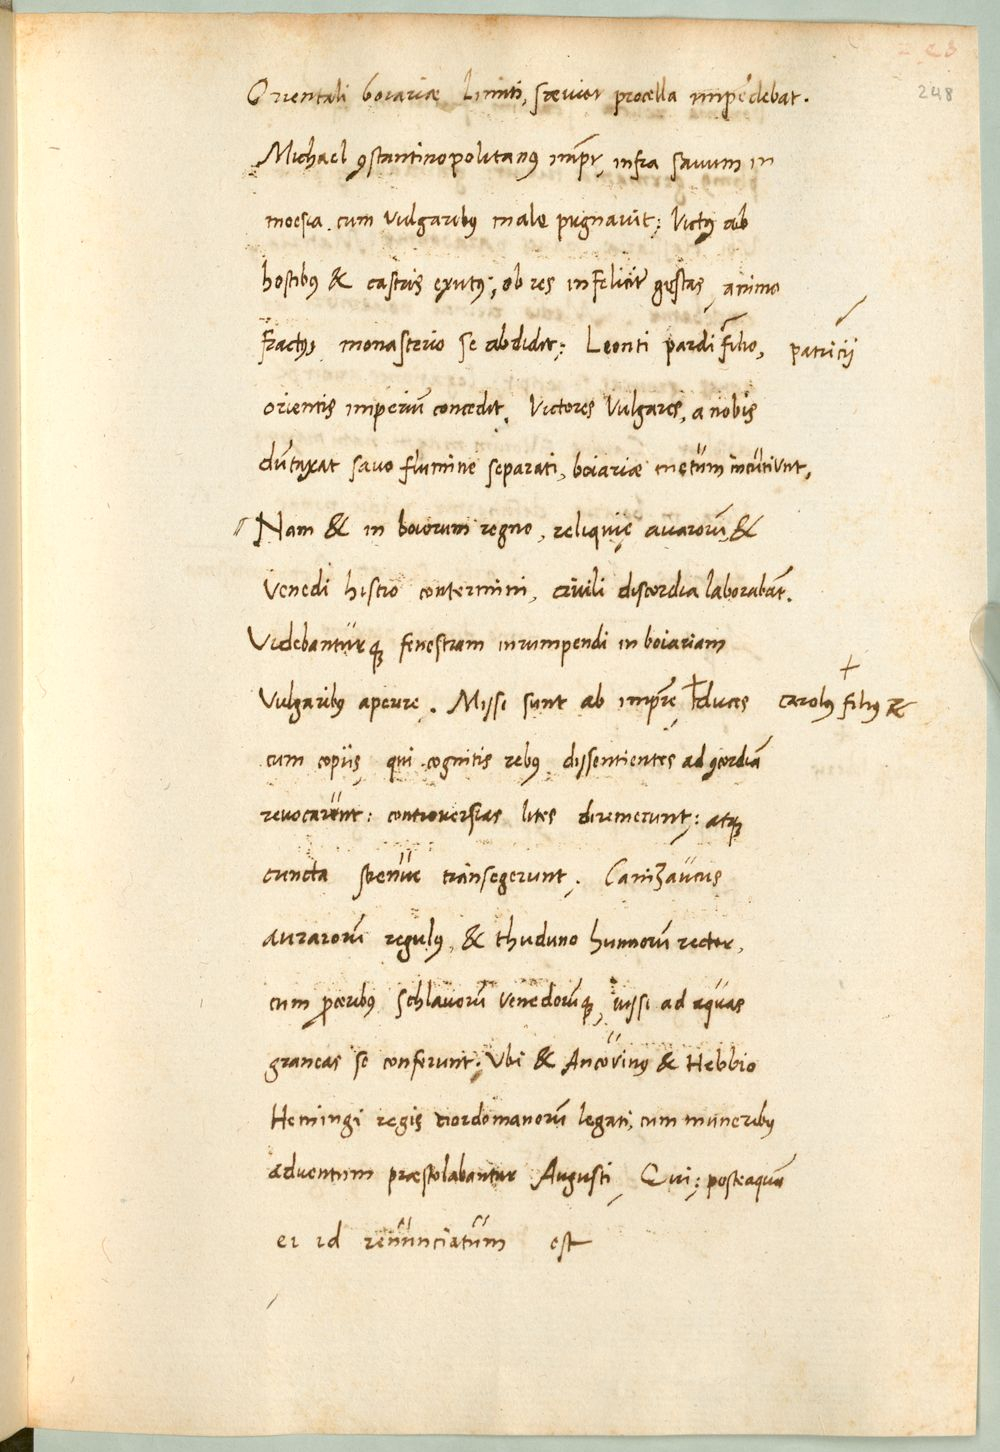 248
Orientali boiariæ Limiti, sæuior procella impēdebat.
Michael ꝯstantinopolitanꝰ imꝑr, infra sauum in
moesia cum Vulgaribꝰ male pugnauit; Victꝰ ab
hostibꝰ & castris exutꝰ; ob res infelicit̄ gestas, animo
fractꝰ, monasterio se abdidit; Leonti pardi filio, patricii
orientis imperiū concedit. Victores Vulgares, a nobis
dūtaxat sauo flumine separati, boiariæ metum incutiunt,
Nam & in boiorum regno, reliquiæ auarorū, &
Venedi histro contermini, ciuili discordia laborabāt.
Videbanturqꝫ fenestram inrumpendi in boiariam
Vulgaribꝰ aperire. Missi sunt ab impr̄e +duces + Carolꝰ filiꝰ &
cum copiis, qui cognitis rebꝰ dissentientes ad ꝯcordiā
reuocarunt: controuersias lites diremerunt; atqꝫ
cuncta strenue transegerunt. Canizaucus
aurarorū regulꝰ, & thuduno hunnorū rector,
cum ꝓceribꝰ Schlauorū Venedorūqꝫ, iussi ad aquas
graneas se conferunt. Vbi & Ancouinꝰ & Hebbio
Hemingi regis nordomanorū legati, cum muneribꝰ
aduentum præstolabantur Augusti, Qui; posteaquā
ei id renunciatum est